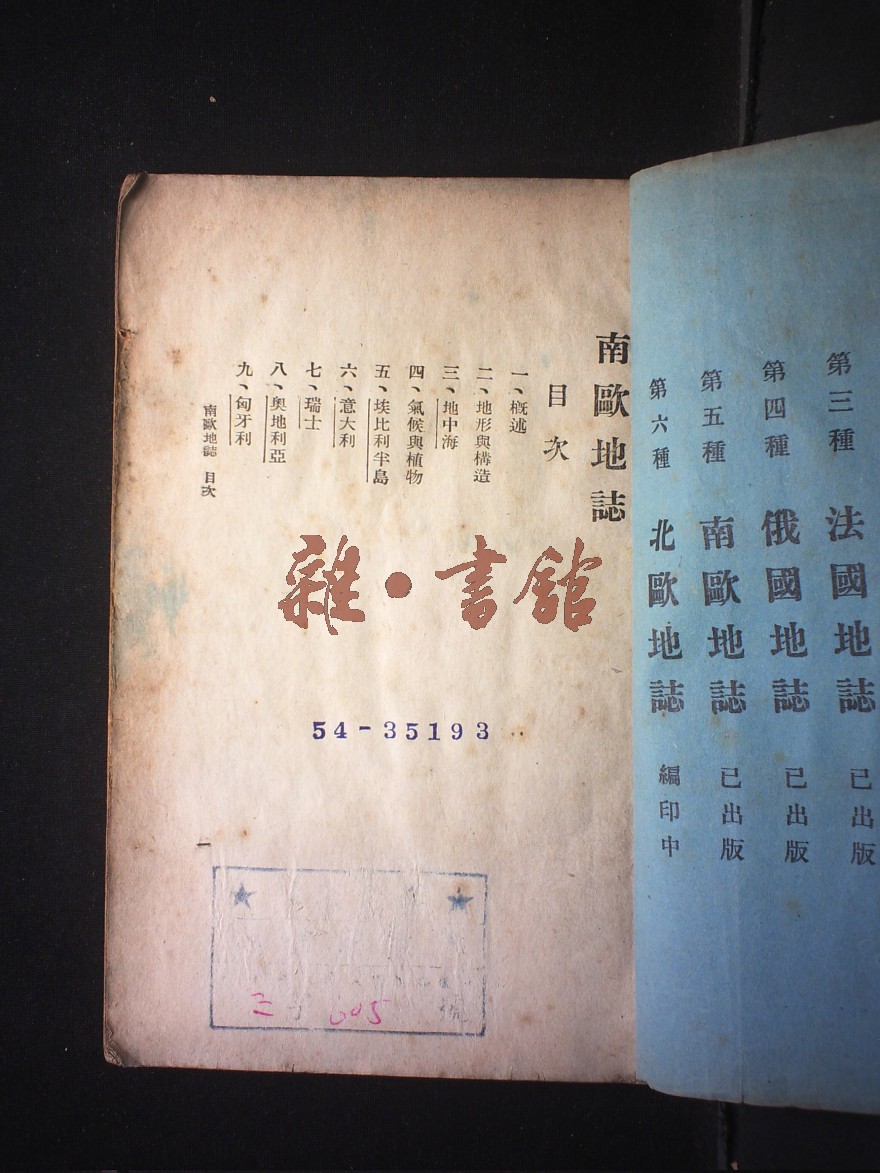 第三種 法國地誌 已出版
第四種 俄國地誌 已出版
第五種 南歐地誌 已出版
第六種 北歐地誌 編印中
南歐地誌
目次
一、概述
二、地形與構造
三、地中海
四、氣候與植物
五、埃比利半島
六、意大利
七、瑞士
八、奧地利亞
九、匈牙利
南歐地誌 目次
一
雜·書館
54-35193